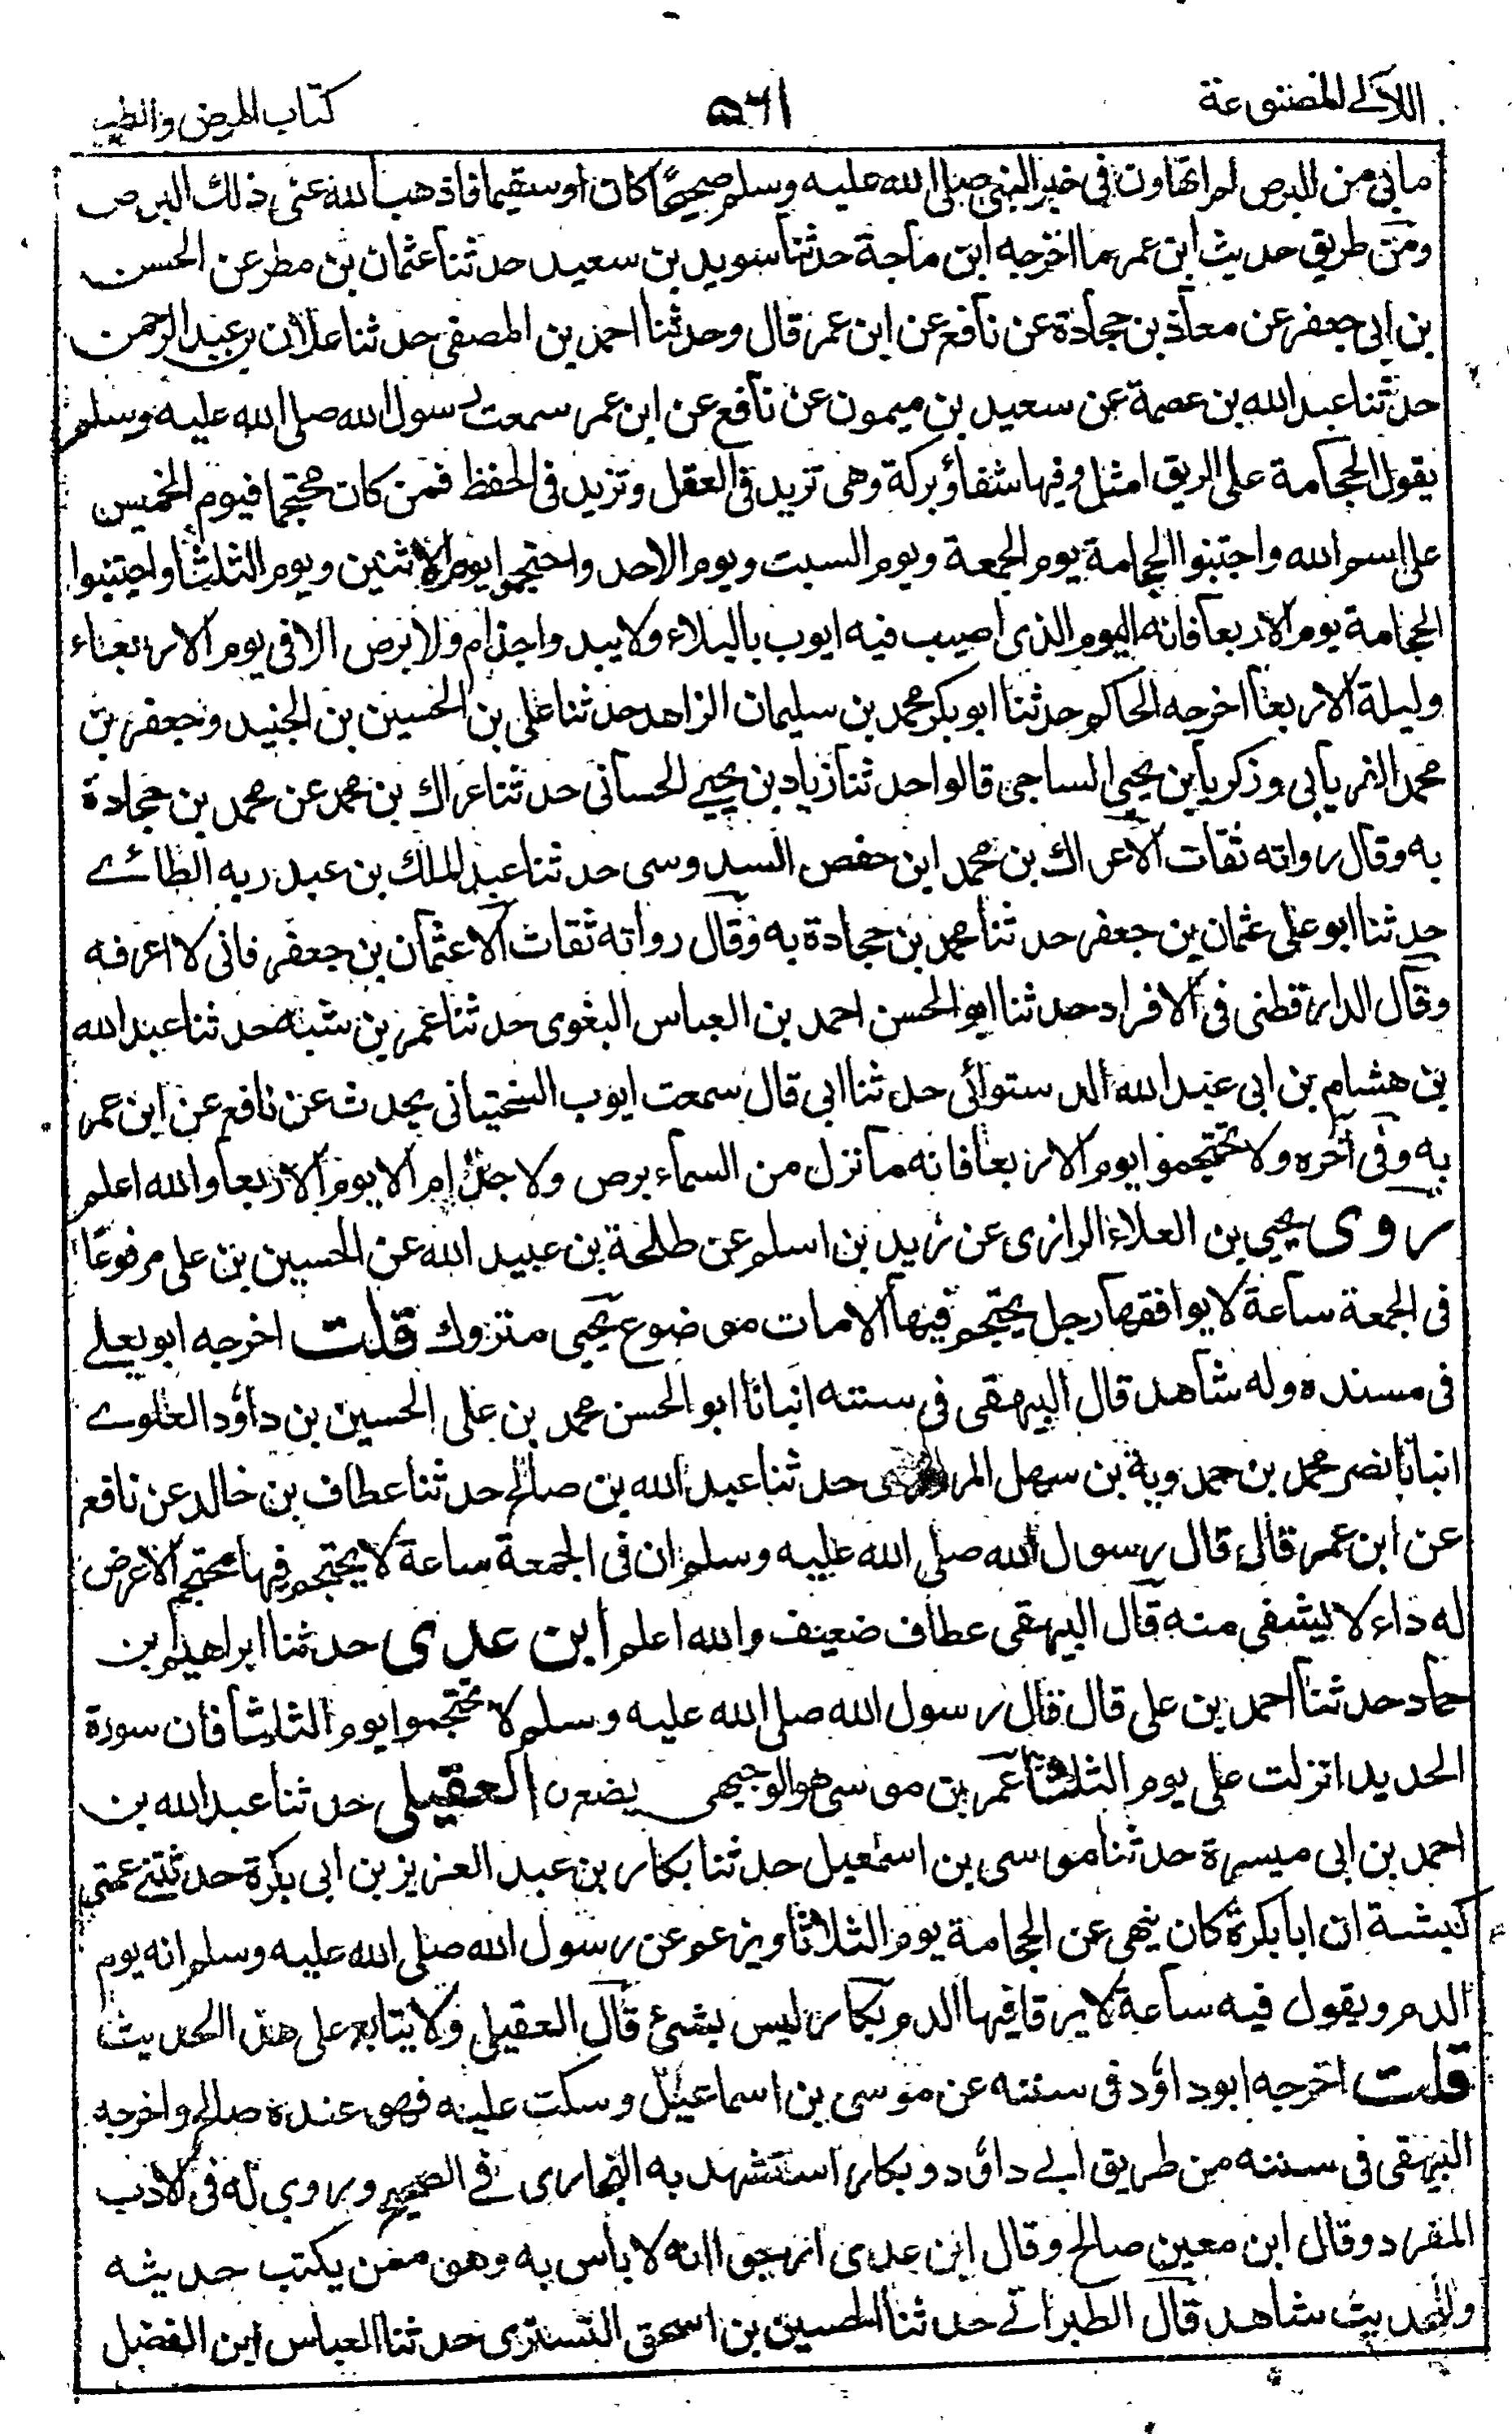 اللآلى المصنوعة
۵۶۱
كتاب المرض والطب
مابي من البرص لم اتهاون في خبر النبي صلى الله عليه وسلم صحيحًا كان او سقيما فاذهب الله عنى ذلك البرص
ومن طريق حديث ابن عمر مما اخرجه ابن ماجة حدثنا سويد بن سعيد حدثنا عثمان بن مطر عن الحسن
بن ابي جعفر عن معاذ بن جحادة عن نافع عن ابن عمر قال وحدثنا احمد بن المصفى حدثنا علان بن عبد الرحمن
حدثنا عبد الله بن عصمة عن سعيد بن ميمون عن نافع عن ابن عمر سمعت رسول الله صلى الله عليه وسلم
يقول الحجامة على الريق امثل وفيها شفاؤ بركة وهى تزيد فى العقل وتزيد فى الحفظ فمن كان محتجما فيوم الخميس
على اسم الله واجتنبوا الحجامة يوم الجمعة ويوم السبت ويوم الاحد واحتجموا يوم الاثنين ويوم الثلثا واجتنبوا
الحجامة يوم الاربعا فانه اليوم الذى اصيب فيه ايوب بالبلاء ولا يبدو اجذام ولا برص الا فى يوم الاربعاء
وليلة الاربعا اخرجه الحاكم حدثنا ابو بكر محمد بن سليمان الزاهد حدثنا على بن الحسين بن الجنيد وجعفر بن
محمد الفريابي وزكريا بن يحيى الساجى قالوا حدثنا زياد بن يحيى الحسانى حدثنا عراك بن محمد عن محمد بن جحادة
به وقال رواته ثقات الا عراك بن محمد ابن حفص السدوسى حدثنا عبد الملك بن عبد ربه الطائے
حدثنا ابو على عثمان بن جعفر حدثنا محمد بن جحادة به وقال رواته ثقات الا عثمان بن جعفر فانى لا اعرفه
وقال الدارقطنى فى الافراد حدثنا ابو الحسن احمد بن العباس البغوى حدثنا عمر بن شبه حدثنا عبد الله
بن هشام بن ابى عبد الله الدستوائى حدثنا ابى قال سمعت ايوب السختيانى يحدث عن نافع عن ابن عمر
به وفى آخره ولا تحتجموا يوم الاربعا فانه ما نزل من السماء برص ولا جذام الا يوم الاربعا والله اعلم
روى يحيي بن العلاء الرازى عن زيد بن اسلم عن طلحة بن عبيد الله عن الحسين بن على مرفوعًا
فى الجمعة ساعة لا يوافقها رجل يحتجم فيها الامات موضوع يحيى متروك قلت اخرجه ابو يعلے
فى مسنده وله شاهد قال البيهقى فى سننه انبانا ابو الحسن محمد بن على الحسين بن داؤد العلوے
انبانا نصر محمد بن حمدوية بن سهل حدثنا عبد الله بن صالح حدثنا عطاف بن خالد عن نافع
عن ابن عمر قال قال رسول الله صلى الله عليه وسلم ان فى الجمعة ساعة لا يحتجم فيها محتجم الا عرض
له داء لا يشفى منه قال البيهقى عطاف ضعيف والله اعلم ابن عدى حدثنا ابراهيم بن
حماد حدثنا احمد بن على قال قال رسول الله صلى الله عليه وسلم لا تحتجموا يوم الثلاثا فان سورة
الحديد انزلت على يوم الثلاثا عمر بن موسى هو الوجيهى يضع العقيلى حدثنا عبد الله بن
احمد بن ابى ميسرة حدثنا موسى بن اسمعيل حدثنا بكار بن عبد العزيز بن ابى بكرة حدثتنے عمتى
كبشة ان ابا بكرة كان ينهى عن الحجامة يوم الثلاثا ويزعم عن رسول الله صلى الله عليه وسلم انه يوم
الدم ويقول فيه ساعة لا يرقا فيها الدم بكار ليس بشئ قال العقيلى ولا يتابع على هذا الحديث
قلت اخرجه ابو داؤد فى سننه عن موسى بن اسماعيل وسكت عليه فهو عنده صالح واخرجه
البيهقى فى سننه من طريق ابے داؤد وبكار استشهد به البخارى فے الصحيح وروى له فى الادب
المفرد وقال ابن معين صالح وقال ابن عدى ارجوا انه لا باس به وهو ممن يكتب حديثه
وللحديث شاهد قال الطبرانے حدثنا الحسين بن اسحق التسترى حدثنا العباس ابن الفضل